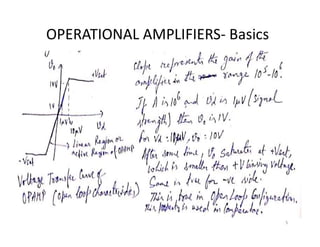 OPERATIONAL AMPLIFIERS- Basics
Slope represents the gain of the
amplifier in the range 10⁵-10⁶.
If A is 10⁶ and Vd is 1μV (Signal
strength) then Vo is 1V.
For Vd = 10μV, Vo = 10V
After some time, Vo saturates at +Vsat,
which is smaller than +V biasing voltage.
Same is true for -ve side.
This is true in Open Loop Configuration.
This property is used in Comparator.
Vo
+Vsat
10V
1V
1μV
10μV
Vd
Linear Region or
Active Region of OPAMP
-Vsat
Voltage Transfer Curve of
OPAMP (Open loop characteristics)